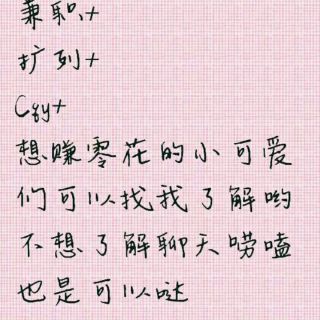 兼职+
扩列+
Cqy+
想赚零花的小可爱
们可以找我了解哟
不想了解聊天唠嗑
也是可以哒